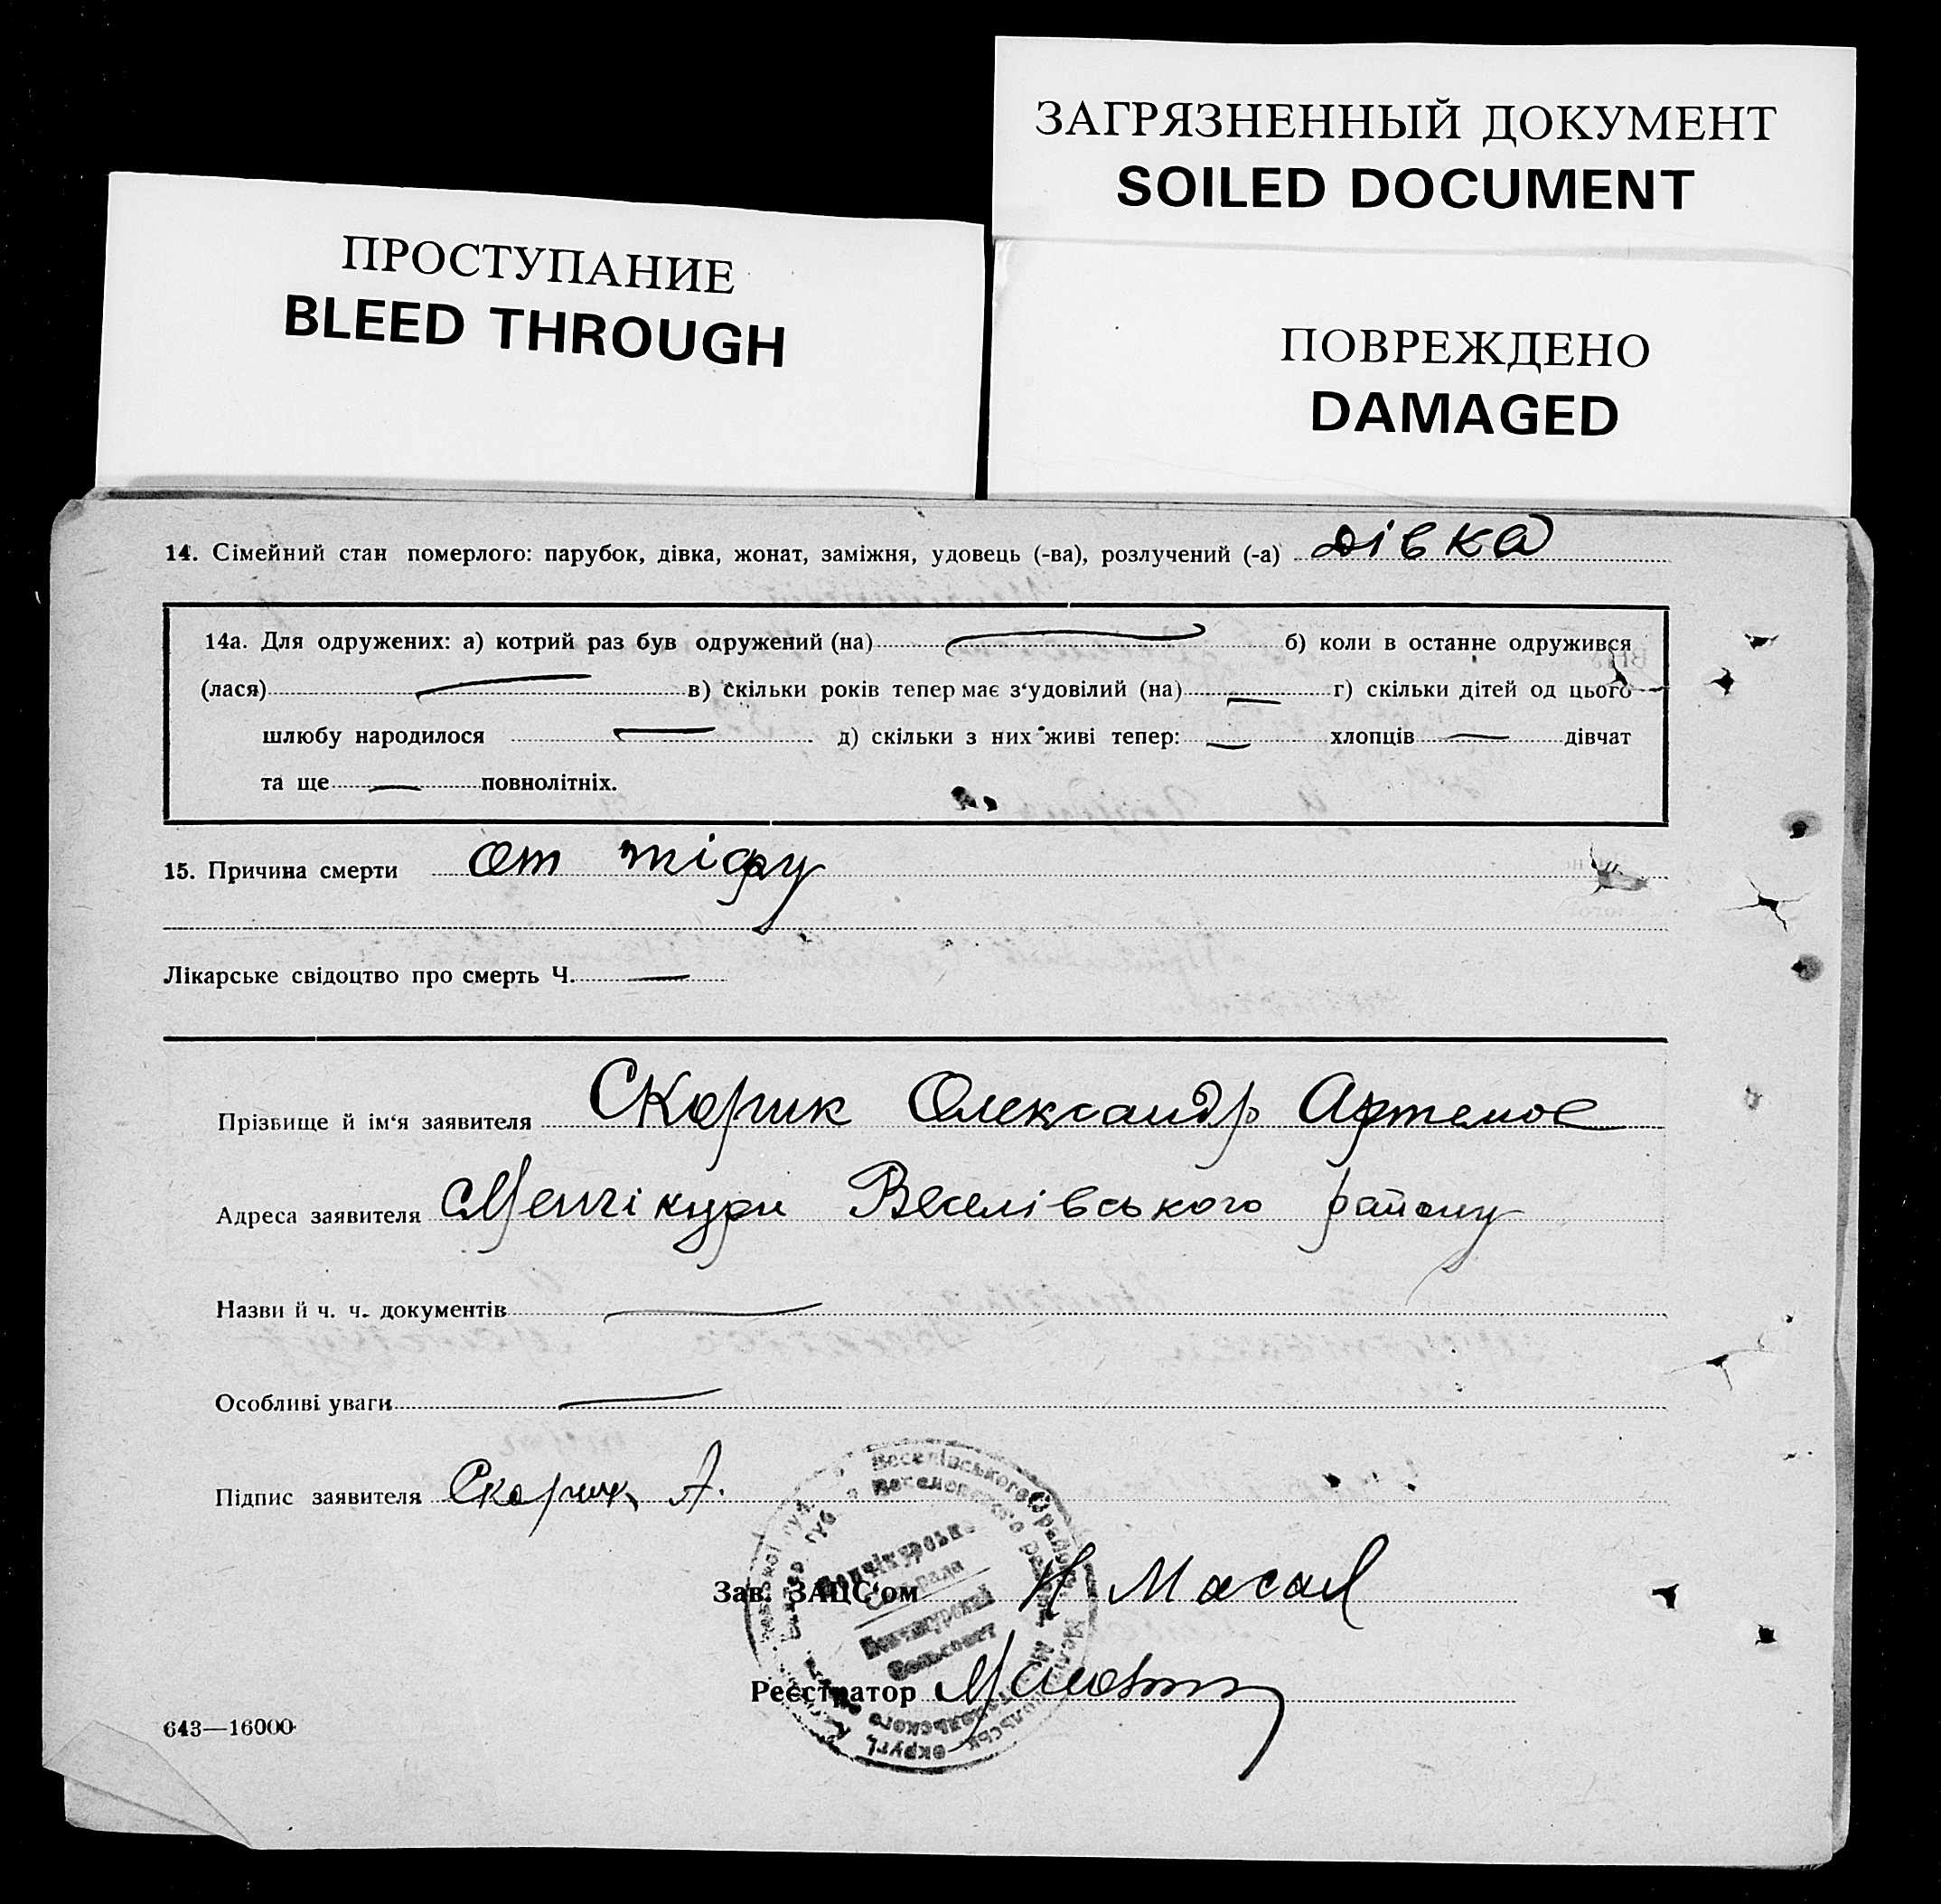 ЗАГРЯЗНЕННЫЙ ДОКУМЕНТ
SOILED DOCUMENT
ПРОСТУПАНИЕ
BLEED THROUGH
ПОВРЕЖДЕНО
DAMAGED
14. Сімейний стан померлого: парубок, дівка, жонат, заміжня, удовець (-ва), розлучений (-а) дівка
14а. Для одружених: а) котрий раз був одружений (на) б) коли в останне одружився
(лася) в) скільки років тепер має з'удовілий (на) г) скільки дітей од цього
шлюбу народилося д) скільки з них живі тепер: хлопців дівчат
та ще повнолітніх.
15. Причина смерти от тіфу
Лікарське свідоцтво про смерть Ч.
Прізвище й ім'я заявителя Скорик Олександр Артемов
Адреса заявителя Менчікури Веселівського району
Назви й ч. ч. документів
Особливі уваги
Підпис заявителя Скорик А.
Зав. ЗАЦС'ом
Реєстратор
643—16000